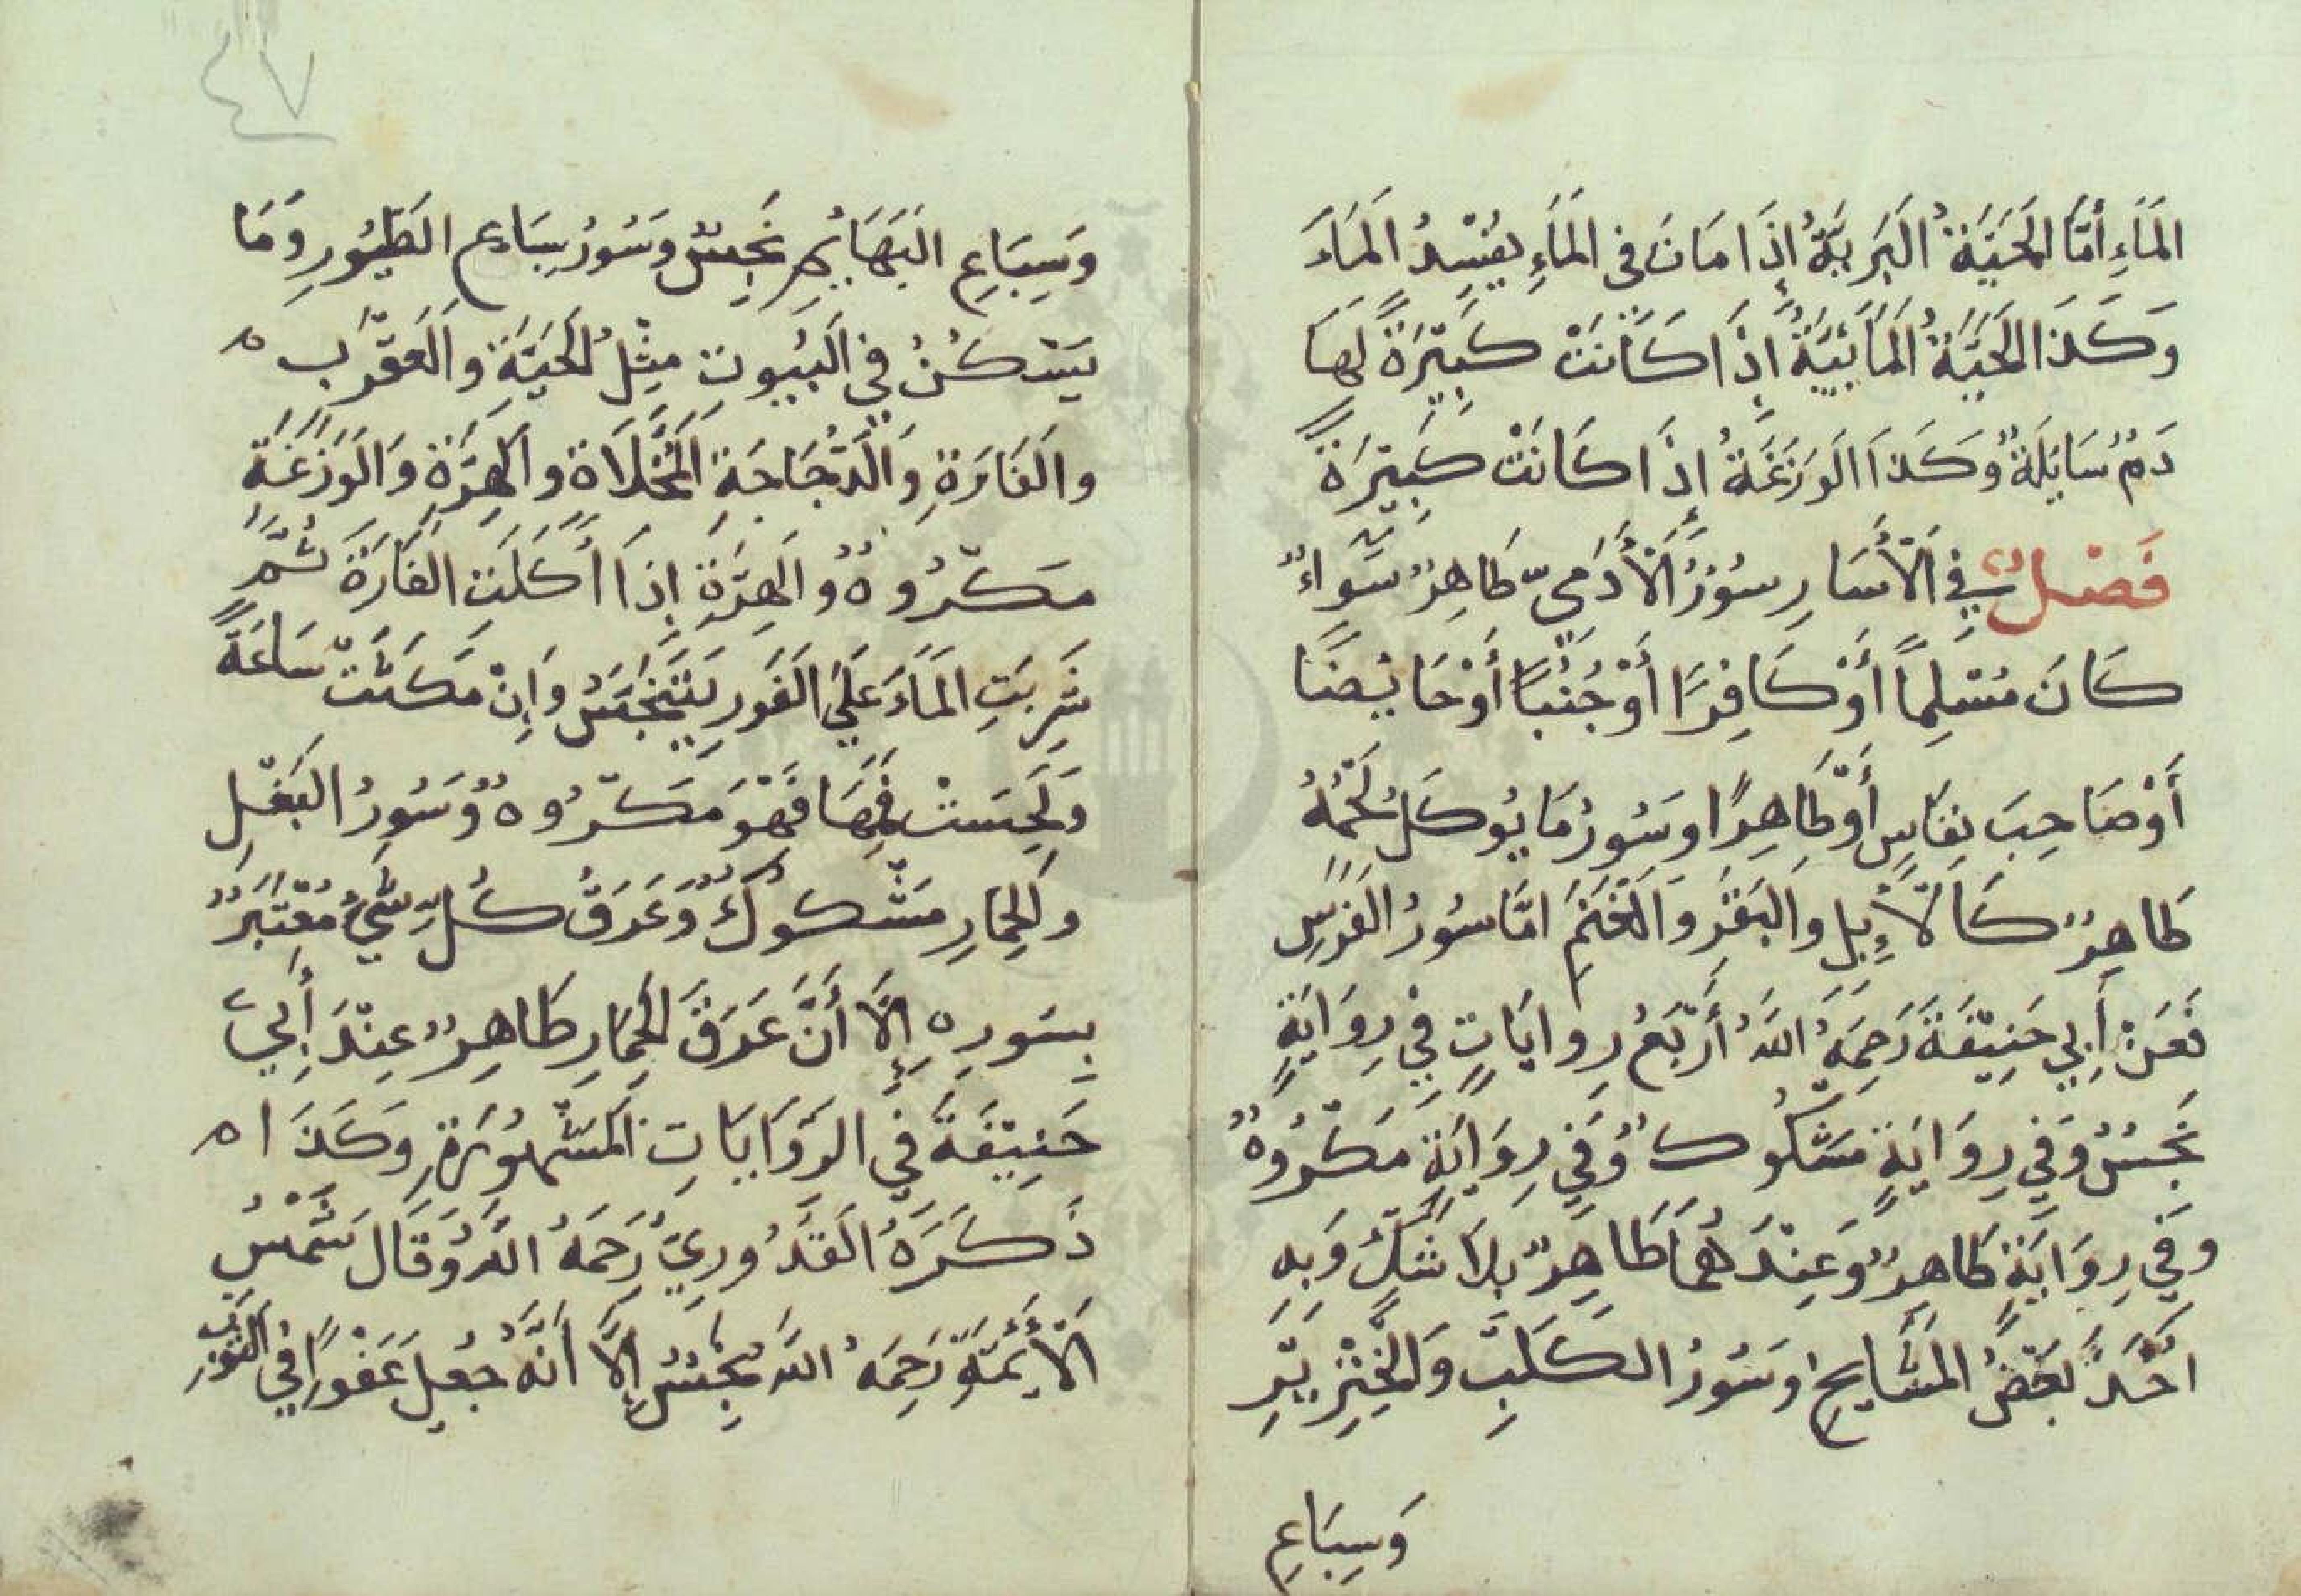 المَاءِ أمَّا الحَيَةُ البَرِيَّةُ إِذَا مَاتَ فى المَاءِ يفسِدُ المَاءَ
وَكَذَا الحَيَّةُ المَائِيَّةُ إِذَا كَانَتْ كَبِيْرَةً لَهَا
دَمٌ سَايِلَةٌ وَكَذَا الوَزَغَةُ إِذَا كَانَتْ كَبِيْرَةً
فَصْلٌ فِي الْأَسَارِ سُؤرُ الْأدَمِيِّ طَاهِرٌ سَوَاءٌ
كَانَ مُسْلِماً أَوْ كَافِرًا أوْ جُنُبًا أوْ حَايِضًا
أَوْ صَاحِبَ نِفَاسٍ أَوْ طَاهِرًا وسُورُ مَا يُوكَلُ لَحْمُهُ
طَاهِرٌ كَالْأِبِلِ والبَقَرِ وَالْغَنَمِ امَّا سُورُ الفَرَسِ
فَعَنْ أَبِي حَنِيْفَةَ رَحِمَهُ اللهُ أَرْبَعُ رِوايَاتٍ فِي رِوَايَةٍ
نَجِسٌ وَفِي رِوَايَةٍ مَشْكُوكٌ وَفِي رِوَايَةٍ مَكْرُوهٌ
وفِي رِوَايَةٍ طَاهِرٌ وَعِنْدَهُمَا طَاهِرٌ بِلَا شَكٍّ وَبِهِ
اخَذَ بَعْضُ المَشَايِخِ وسُورُ الكَلْبِ وَالخِنْزِيْرِ
وَسِبَاعِ
٤٧
وَسِبَاعِ البَهَائِمِ نَجِسٌ وَسُورُ سِبَاعِ الطُيُورِ وَمَا
يَسْكُنُ فِي البُيُوتِ مِثْلُ الحَيَّةِ والعَقْرَبِ
والفَارَةِ وَالدَّجَاجَةِ المُخَلَاةِ والهِرَّةِ وَالوَزَغَةِ
مَكْرُوهٌ وُالهِرَّةِ إِذَا أَكَلَتِ الفَارَةَ ثُمَّ
شَرِبَتِ المَاءَ عَلَى الفَورِ يَتَنَجَّسُ وَإِنْ مَكَثَتْ سَاعَةً
وَلَحِسَتْ فَمَهَا فَهْوَ مَكْرُوهٌ وَسُورُ البَغْلِ
والحِمَارِ مَشْكُوكٌ وَعَرَقُ كُلِّ شَيْءٍ مُعْتَبَرٌ
بِسُورِهِ إِلَّا أَنَّ عَرَقَ الحِمَارِ طَاهِرٌ عِنْدَ أَبِي
حَنِيْفَةَ فِي الرِّوَايَاتِ المَشْهُورَةِ وَكَذَا
ذَكَرَهُ القُدُورِيّ رَحِمَهُ اللهُ وَقَالَ شَمْسُ
الْأَيِمَّةِ رَحِمَهُ اللهُ نَجِسٌ إِلَّا أنَّهُ جُعِلَ عَفْوًا فِي الثَّوْبِ